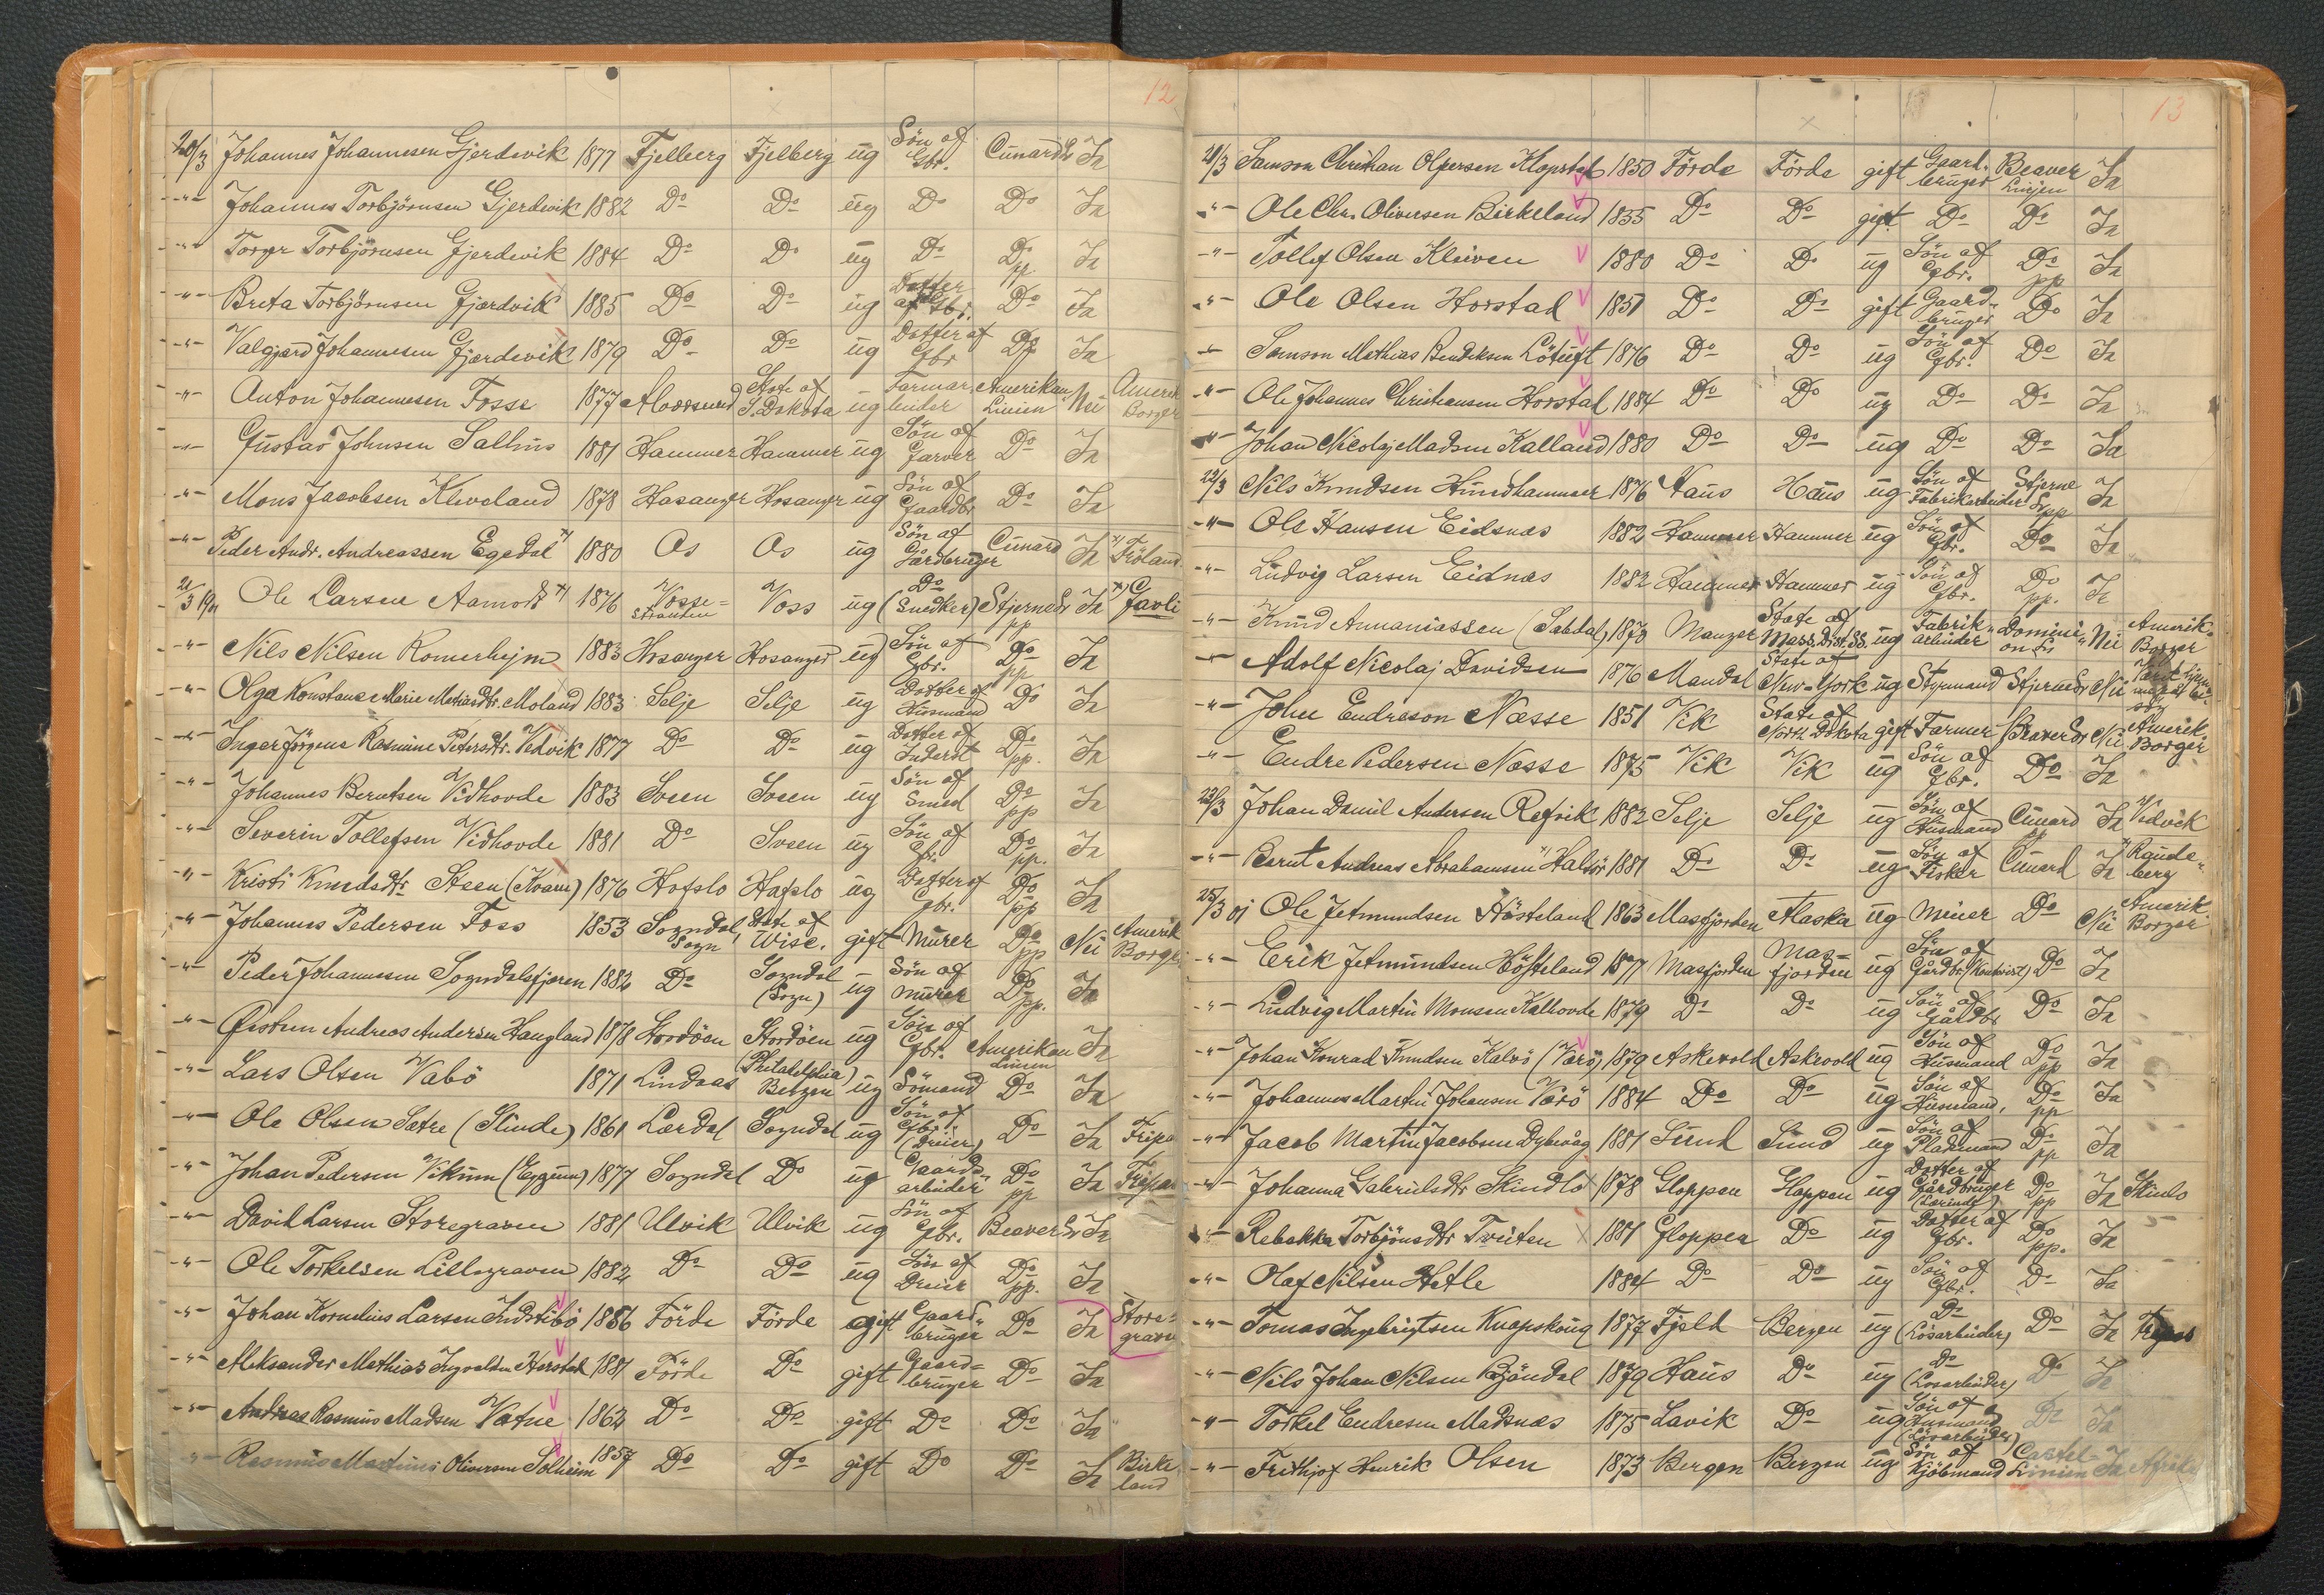 12
20/3 Johannes Johannesen Gjerdevik 1877 Fjelberg Fjelberg ug Søn af Gbr. Cunard L Ja
-"- Johannes Torbjörnsen Gjerdevik 1882 Do Do ug Do Do Ja
-"- Torger Torbjörnsen Gjerdevik 1884 Do Do ug Do Do pp. Ja
-"- Brita Torbjörnsen Gjerdvik 1885 Do Do ug Datter af Gbr. Do Ja
-"- Valgjerd Johannesen Gjerdevik 1879 Do Do ug Datter af Gbr Do Ja
-"- Anton Johannesen Fosse 1877 State of S. Dakota ug Amerikan Linien Nei Amerik Borger
-"- Gustav Johnsen Salhus 1881 Hammer Hammer ug Søn af Garver Do Ja
-"- Mons Jacobsen Kleveland 1878 Hosanger Hosanger ug Søn af Gaardbr Do Ja
-"- Peder Andr. Andreassen Egedal x) 1880 Os Os ug Søn af Gårdbruger Cunard Ja x) Tröland
21/3 1901 Ole Larsen Aamodt x) 1876 Vosse=stranden Voss ug Do (Snedker) Stjerne Ln pp Ja x) Gavli
-"- Nils Nilsen Romerhejm 1883 Hosanger Hosanger ug Søn af Gbr. Do pp Ja
-"- Olga Konstance Marie Mathiasdtr. Moland 1883 Selje Selje ug Datter af Husmand Do Ja
-"- Inger Jörgine Rasmine Petersdtr. Vedvik 1877 Do Do ug Datter af Inderst Do pp. Ja
-"- Johannes Berntsen Vidhovde 1883 Sveen Sveen ug Søn af Smed Do pp Ja
-"- Severin Tollefsen Vidhovde 1881 Do Sveen ug Søn af Gbr. Do pp. Ja
-"- Kristi Knudsdtr. Steen (Kvam) 1876 Hafslo Hafslo ug Datter af Gbr. Do pp Ja
-"- Johannes Pedersen Foss 1853 Sogndal, Sogn State of Wisc. gift Murer Do pp Nei Amerik Borger
-"- Peder Johannesen Sogndalsfjæren 1882 Do Sogndal (Sogn) ug Søn af Murer Do pp. Ja
-"- Øistein Andreas Andersen Haugland 1878 Stordöen Stordöen ug Søn af Gbr. Amerikan Linien Ja
-"- Lars Olsen Vabö 1871 Lindaas (Philadelphia) Bergen ug Sömand Do Ja
-"- Ole Olsen Sætre (Slinde) 1861 Lærdal Sogndal ug Søn af Gbr. (Dreier) Do Ja Fripas
-"- Johan Pedersen Vikum (Eggum) 1877 Sogndal Do ug Gaards arbeider Do pp Ja Fripas
-"- David Larsen Storegraven 1881 Ulvik Ulvik ug Søn af Gbr. Beaver Ln Ja
-"- Ole Torkelsen Lillegraven 1882 Do Do ug Søn af Dreier Do pp. Ja
-"- Johan Kornelius Larsen Indrebö 1856 Förde Förde gift Gaard bruger Do Ja Store= graven
-"- Aleksander Mathias Ingvaldsen Horstad 1881 Förde Do gift Gaard= bruger Do Ja
-"- Andreas Rasmus Madsen Vatne 1862 Do Do gift Do Do Ja
-"- Rasmus Martinus Oliversen Solheim 1857 Do Do gift Do Do Ja Birke land
13
21/3 Samson Christian Olsersen Klopstad 1850 Förde Förde gift Gaard. bruger Beaver Linjen Ja
-"- Ole Chr. Oliversen Birkeland 1855 Do Do gift Do Do Ja
-"- Tollef Olsen Kleiven 1880 Do Do ug Søn af Gbr. Do pp Ja
-"- Ole Olsen Horstad 1851 Do Do gift Gaard. bruger Do Ja
-"- Samson Mathias Bendiksen Lötuft 1876 Do Do ug Søn af Gbr. Do Ja
-"- Ole Johannes Christiansen Horstad 1884 Do Do ug Do Do Ja
-"- Johan Nicolay Madsen Kalland 1880 Do Do ug Do Do Ja
22/3 Nils Knudsen Hundhammer 1876 Haus Haus ug Søn af Fabrikarbeider Stjerne Ln pp Ja
-"- Ole Hansen Eidsnæs 1882 Hammer Hammer ug Søn af Gbr. Do Ja
-"- Ludvig Larsen Eidnæs 1882 Hammer Hammer ug Søn af Gbr. Do pp. Ja
-"- Knud Annaniassen (Sabdal) 1870 Manger State of Mass. ug Fabrik" arbeider Domini" on Ln Nei Amerik. Borger
-"- Adolf Nicolaj Davidsen 1876 Mandal State of New-York ug Styrmand Stjerne Ln Nei
-"- John Endreson Næsse 1851 Vik State of North Dakota gift Farmer Beaver Ln Nei Amerik. Borger
-"- Endre Pedersen Næsse 1875 Vik Vik ug Søn af Gbr. Do Ja
23/3 Johan Daniel Andersen Refvik 1882 Selje Selje ug Søn af Husmand Cunard pp Ja x) Vedvik
-"- Bernt Andreas Abrahamsen Halsör 1881 Do Do ug Søn af Fisker Cunard Ja x) Raude" berg
25/3 01 Ole Jetmundsen Hösteland 1863 Masfjorden Alaska ug Meier Do Nei Amerik. Borger
-"- Erik Jetmundsen Hösteland 1877 Masfjorden Mas= fjorden ug Søn af Gårdbr (Kontorist) Do Ja
-"- Ludvig Martin Monsen Kalhovde 1879 Do Do ug Søn af Gårdbr Do Ja
-"- Johan Konrad Knudsen Kalvö (Værö) 1879 Askevold Askevold ug Søn af Husmand Do pp Ja
-"- Johannes Martin Johansen Værö 1884 Do Do ug Søn af Husmand, Do pp Ja
-"- Jacob Martin Jacobsen Dybevåg 1881 Sund Sund ug Søn af Pladsmand Do pp Ja
-"- Johanna Gabrielsdtr Skindlo 1878 Gloppen Gloppen ug Datter af Gårdbruger Do pp Ja Skinlo
-"- Rebekka Torbjönsdtr Tveiten 1881 Gloppen Do ug Datter af Gbr. Do pp. Ja
-"- Olaf Nilsen Hetle 1884 Do Do ug Søn af Gbr. Do Ja
-"- Tomas Ingebrigtsen Knapskoug 1877 Fjeld Bergen ug Do (Lösarbeider) Do Ja Fripas
-"- Nils Johan Nilsen Bjöndal 1879 Haus Do ug Do (Lösarbeider) Do Ja
-"- Torkel Endresen Madsnæs 1875 Lavik Do ug Søn af Husmand (Lösarbeider) Do Ja
-"- Frithjof Henrik Olsen 1873 Bergen Bergen ug Søn af Kjöbmand Castel- Linien Ja Afrika